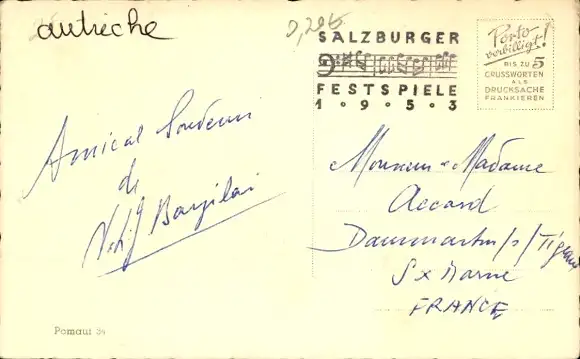 autriche
0,20
SALZBURGER
FESTSPIELE
1 • 9 • 5 • 3
Porto
verbilligt!
BIS ZU 5
GRUSSWORTEN
ALS
DRUCKSACHE
FRANKIEREN
Amical Souvenir
de
Barzilai
Monsieur & Madame
Accard
Dammartin s/ Tigeaux
S x Marne
FRANCE
Pomaur